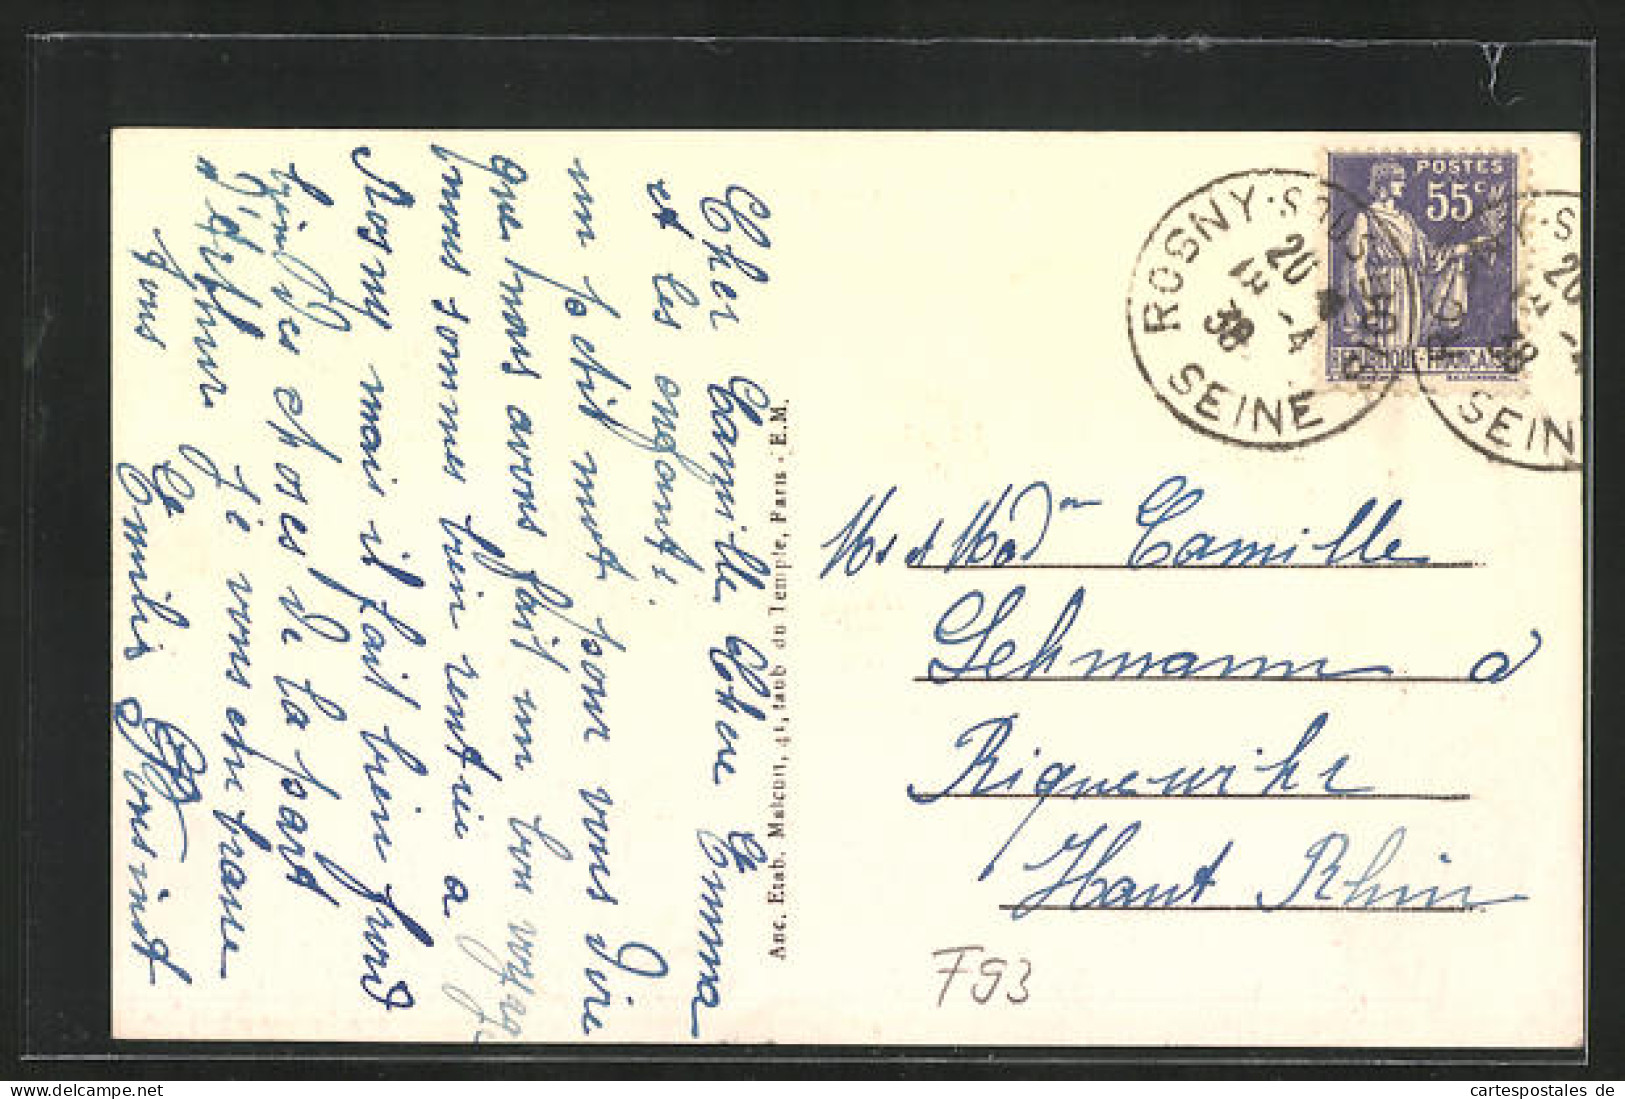 Cher Camille chère Emma
et les enfants
un petit mot pour vous dire
que nous avons fait un bon voyage
nous sommes bien rentrée a
Rosny mais il fait bien froid
bien des choses de la part
d'Arthur je vous embrasse
tous
Emilie
Anc. Etab. Malcuit, 41, faub. du Temple, Paris - E.M.
POSTES
55c
REPUBLIQUE-FRANCAISE
ROSNY-SOUS-BOIS
20
1H -4
38
SEINE
ROSNY-S
20
38
SEIN
Mr et Mad me Camille
Lehmann a
Riquewihr
Haut Rhin
F93
cartespostales de